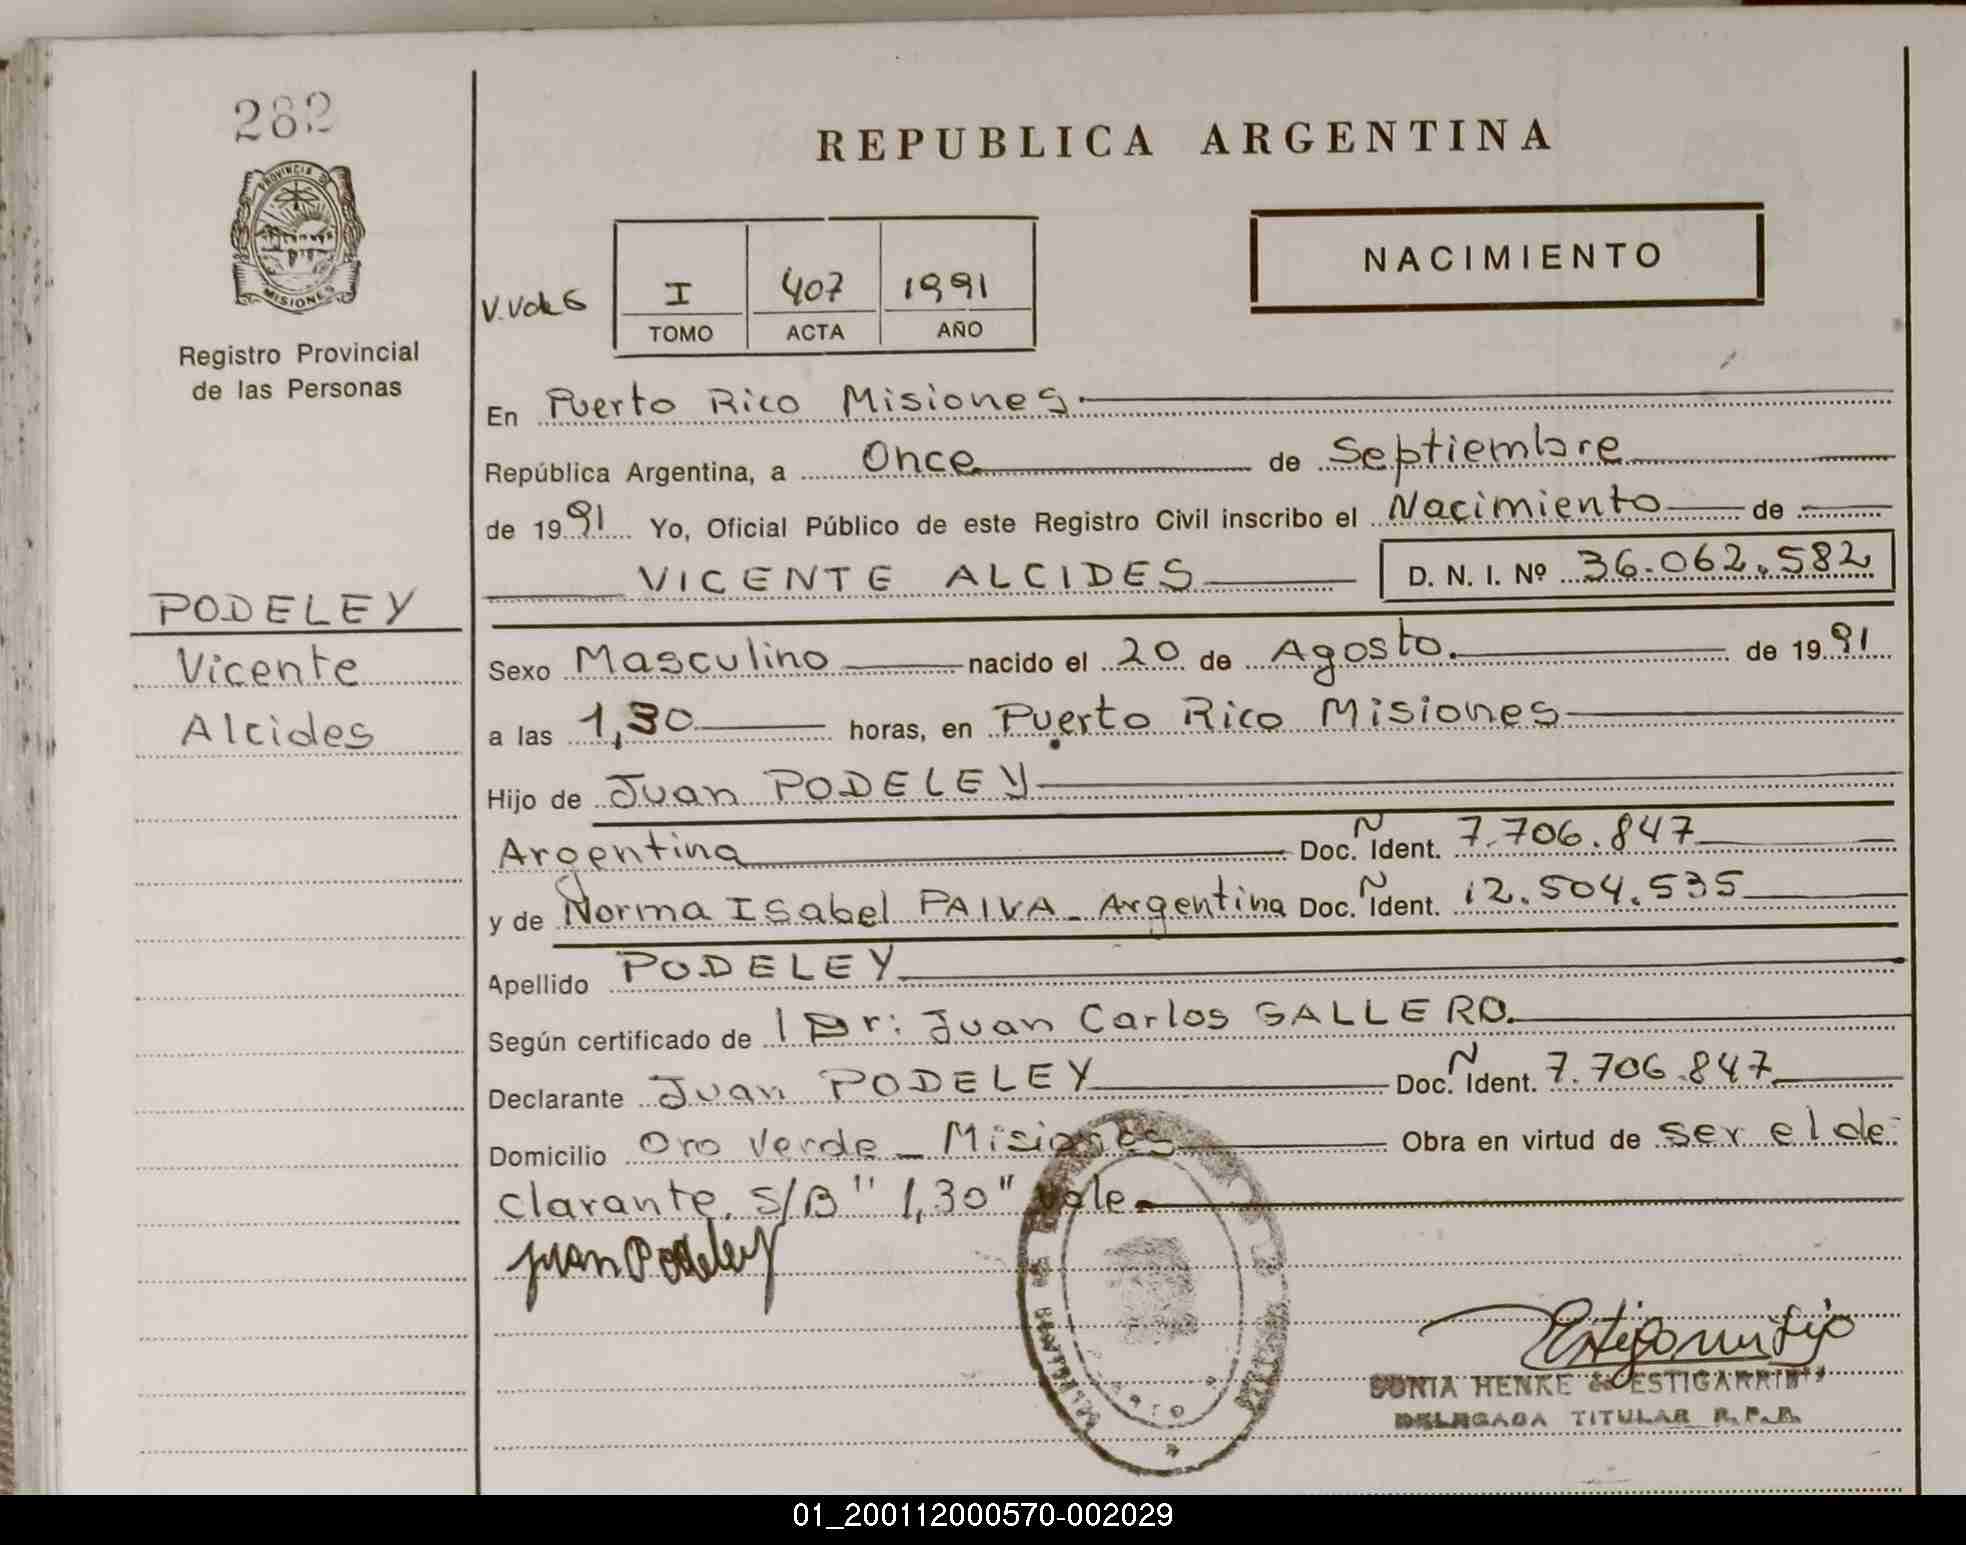 282
PROVINCIA DE
MISIONES
Registro Provincial
de las Personas
PODELEY
Vicente
Alcides
REPUBLICA ARGENTINA
NACIMIENTO
I 407 1991
TOMO ACTA AÑO
En Puerto Rico Misiones
República Argentina, a Once de Septiembre
de 1991 Yo, Oficial Público de este Registro Civil inscribo el Nacimiento de
VICENTE ALCIDES D. N. I. Nº 36.062.582
Sexo Masculino nacido el 20 de Agosto. de 1991
a las 1,30 horas, en Puerto Rico Misiones
Hijo de Juan PODELEY
Argentina Doc. Ñ Ident. 7.706.847
y de Norma Isabel PAIVA - Argentina Doc. Ñ Ident. 12.504.535
Apellido PODELEY
Según certificado de Dr: Juan Carlos GALLERO.
Declarante Juan PODELEY Doc. Ñ Ident. 7.706.847
Domicilio Oro Verde - Misiones Obra en virtud de ser el de-
clarante. S/B "1,30" vale.
Juan Podeley
SONIA HENKE de ESTIGARRIBIA
DELEGADA TITULAR R.P.P.
01_200112000570-002029